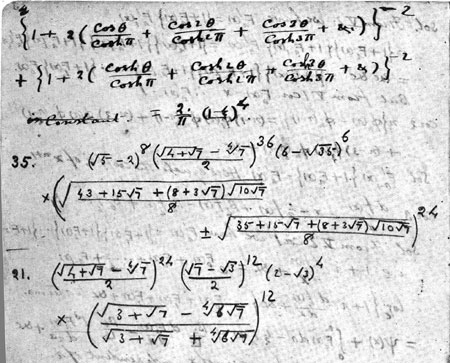 {1 + 2(Cos θ/Cosh π + Cos 2θ/Cosh 2π + Cos 3θ/Cosh 3π + &c)}^-2
+ {1 + 2(Cosh θ/Cosh π + Cosh 2θ/Cosh 2π + Cosh 3θ/Cosh 3π + &c)}^-2
is Constant = 2/π
35. (√5 - 2)^8 ((√(4+√7) - ∜7)/2)^36 (6 - √35)^6
× (√((43 + 15√7 + (8+3√7)√(10√7))/8)
± √((35 + 15√7 + (8+3√7)√(10√7))/8))^24
21. ((√(4+√7) - ∜7)/2)^24 ((√7 - √3)/2)^12 (2 - √3)^4
× ((√(3+√7) - ∜(6√7))/(√(3+√7) + ∜(6√7)))^12